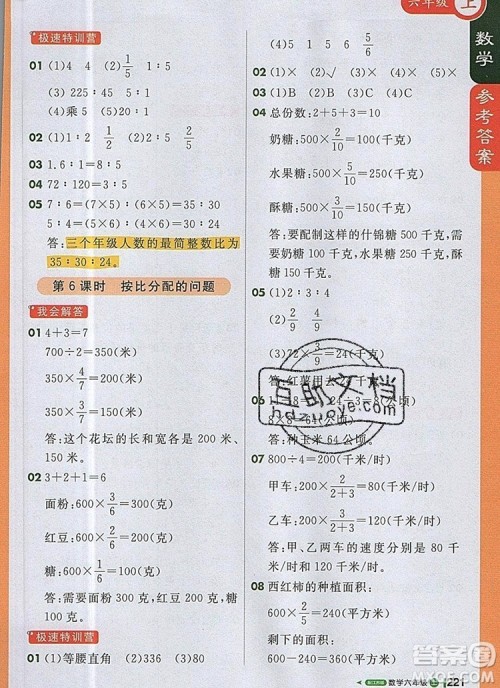 六年级 上
数学
参考答案
极速特训营
01 (1)4 4 1/5 1∶5
(3)225∶45 5∶1
(4)乘5
02 (1)1∶2 1/2 (2)2 1/2
03 1.6∶1=8∶5
04 72∶120=3∶5
05 7∶6=(7×5)∶(6×5)=35∶30
5∶4=(5×6)∶(4×6)=30∶24
答:三个年级人数的最简整数比为
35∶30∶24。
第6课时 按比分配的问题
我会解答
01 4+3=7
700÷2=350(米)
350×4/7=200(米)
350×3/7=150(米)
答:这个花坛的长和宽各是200米、
150米。
02 3+2+1=6
面粉:600×3/6=300(克)
红豆:600×2/6=200(克)
糖:600×1/6=100(克)
答:需要面粉300克,红豆200克,糖
100克。
极速特训营
01 (1)等腰直角 (2)336 (3)80
(4)5 1 5/6
02 (1)× (2)× (3)√ (4)× (5)×
03 (1)B (2)B (3)C (4)C
04 总份数:2+5+3=10
奶糖:500×2/10=100(千克)
水果糖:500×5/10=250(千克)
酥糖:500×3/10=150(千克)
答:要配制这样的什锦糖500千克,
需要奶糖100千克、水果糖250千
克、酥糖150千克。
05 (1)2∶3∶4
(2)2/9 4/9
(3)72×3/9=24(千克)
答:红薯用去24千克。
06
8×8=64(公顷)
答:种玉米64公顷。
07 800÷4=200(千米/时)
甲车:200×2/(2+3)=80(千米/时)
乙车:200×3/(2+3)=120(千米/时)
答:甲、乙两车的速度分别是80千
米/时、120千米/时。
08 西红柿的种植面积:
600×2/5=240(平方米)
剩下的面积:
600-240=360(平方米)
百助文档
hdzuoye.com
数学六年级 上 221
答案圈
MXQE.COM